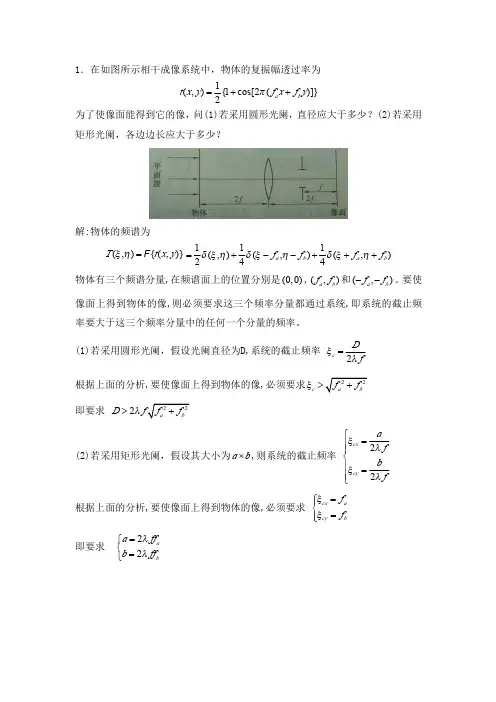 1．在如图所示相干成像系统中，物体的复振幅透过率为
t(x,y)=\frac{1}{2}{1+cos[2π(f_a x+f_b y)]}
为了使像面能得到它的像，问(1)若采用圆形光阑，直径应大于多少？(2)若采用
矩形光阑，各边边长应大于多少？
平面谱
f
2f 2f
物体 像面
解:物体的频谱为
T(ξ,η)=F{t(x,y)}=\frac{1}{2}δ(ξ,η)+\frac{1}{4}δ(ξ-f_a,η-f_b)+\frac{1}{4}δ(ξ+f_a,η+f_b)
物体有三个频谱分量,在频谱面上的位置分别是(0,0)，(f_a,f_b)和(-f_a,-f_b)。要使
像面上得到物体的像,则必须要求这三个频率分量都通过系统,即系统的截止频
率要大于这三个频率分量中的任何一个分量的频率。
(1)若采用圆形光阑，假设光阑直径为D,系统的截止频率 ξ_c=\frac{D}{2λf}
根据上面的分析,要使像面上得到物体的像,必须要求ξ_c>\sqrt{f_a^2+f_b^2}
即要求 D>2λf\sqrt{f_a^2+f_b^2}
(2)若采用矩形光阑，假设其大小为a×b,则系统的截止频率 {ξ_{cx}=\frac{a}{2λf} ξ_{cy}=\frac{b}{2λf}
根据上面的分析,要使像面上得到物体的像,必须要求 {ξ_{cx}=f_a ξ_{cy}=f_b
即要求 {a=2λff_a b=2λff_b